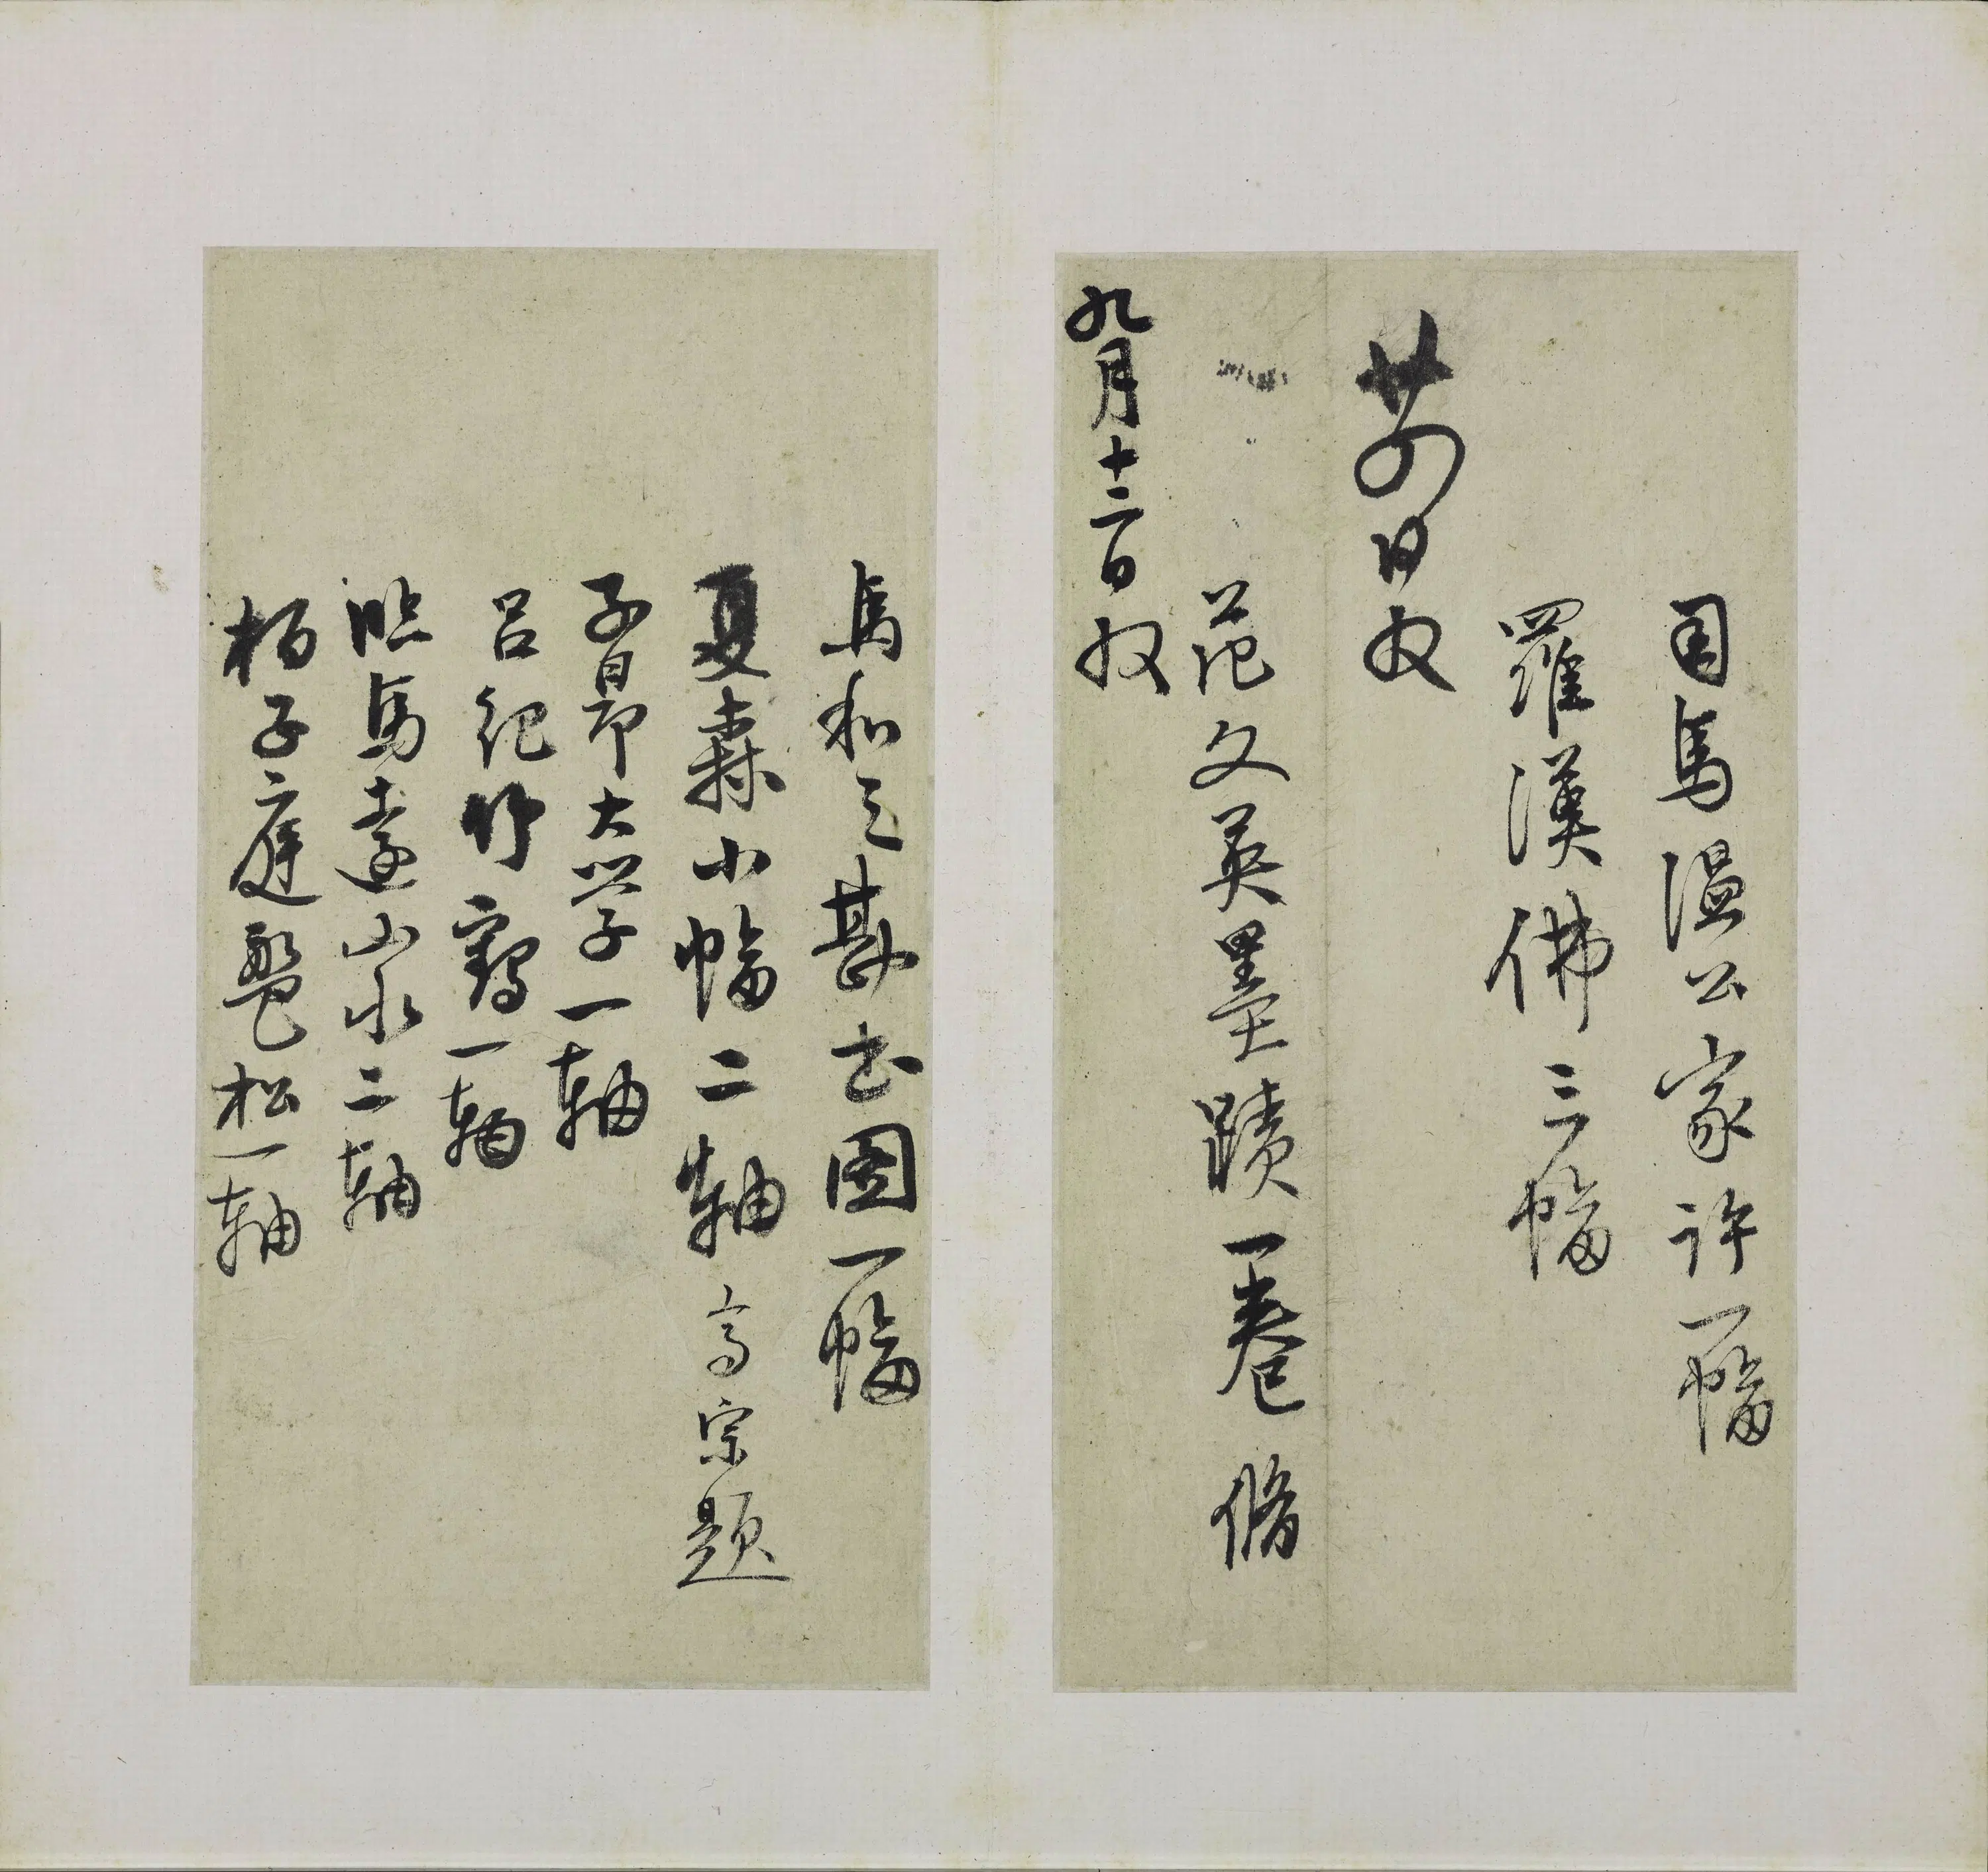 司馬溫公家許一幅
羅漢佛三幅
廿四日收
范文英墨蹟一卷 脩
九月十二日收
馬和之勘書圖一幅
夏森小幅二軸 高宗題
子昂大學一軸
呂紀竹鶴一軸
臨馬遠山水二軸
栢子庭盤松一軸